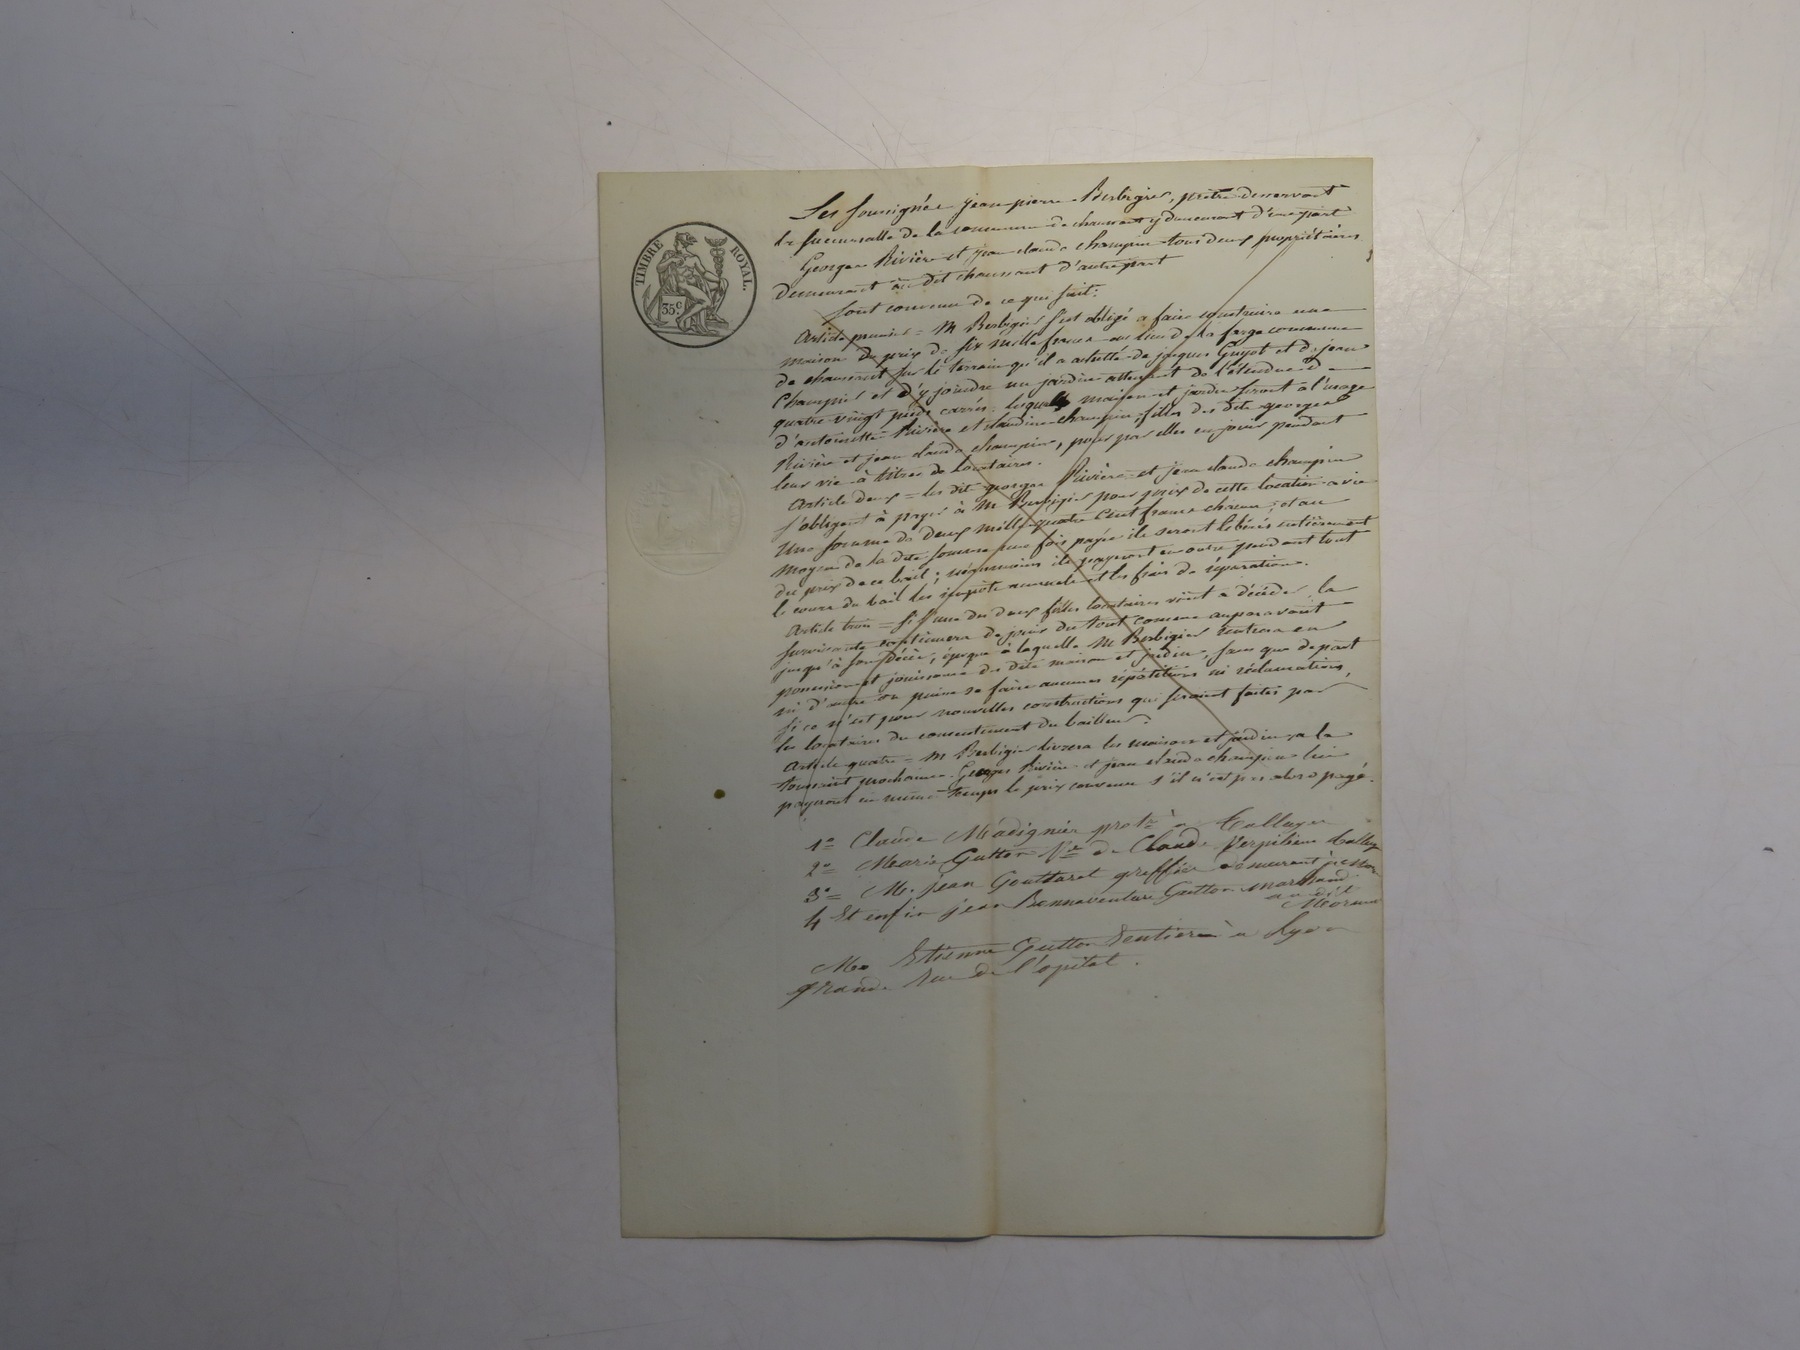 TIMBRE ROYAL.
35c
Les soussignés jean pierre Berbigier, prêtre desservant
la succursalle de la commune de chaussant y demeurant d'une part
Georges Rivière et jean claude champin tous deux propriétaires
demeurant au dit chaussant d'autre part
sont convenu de ce qui suit:
Article premier = Mr Berbigier s'est obligé a faire construire une
maison du prix de six mille francs au lieu de la farge commune
de chaussant sur le terrain qu'il a achetté de jacques Guyot et de jean
Champin et d'y joindre un jardin attenant de l'étendue de
quatre vingt pieds carrés. lesquels maison et jardin seront a l'usage
d'antoinette Rivière et claudine champin, filles des dits georges
Rivière et jean claude champin, pour par elles en jouir pendant
leur vie à titres de locataires.
Article deux = les dit georges Rivière et jean claude champin
s'obligent à payer à Mr Berbigier pour prix de cette location a vie
une somme de deux mille quatre cent francs chacun; et au
moyen de la dite somme une fois payée ils seront libérés entièrement
du prix de ce bail; néanmoins ils payeront en outre pendant tout
le cours du bail les impôts annuels et les frais de réparations.
Article trois = si l'une des deux filles locataires vient a décéder, la
survivante continuera de jouir du tout comme auparavant
jusqu'à son décès, époque à laquelle Mr Berbigier rentrera en
possession et jouissance des dits maison et jardin, sans que de part
ni d'autre on puisse se faire aucunes répétitions ni réclamations,
si ce n'est pour nouvelles constructions qui seraient faites par
les locataires du consentement du bailleur.
Article quatre = Mr Berbigier livrera les maison et jardin a la
toussaint prochaine. Georges Rivière et jean claude champin lui
payeront en même temps le prix convenu s'il n'est pas alors payé.
1° Claude Madignier protre à Talluyer
2° Marie Gutton Ve de Claude Verpilieux
3° M. jean Gouttaret greffier demeurant à Mor
4 Et enfin jean Bonnaventure Gutton marchand
au dit
Mornan
Me Etienne Gutton Rentier à Lyon
grande Rue de l'opital.